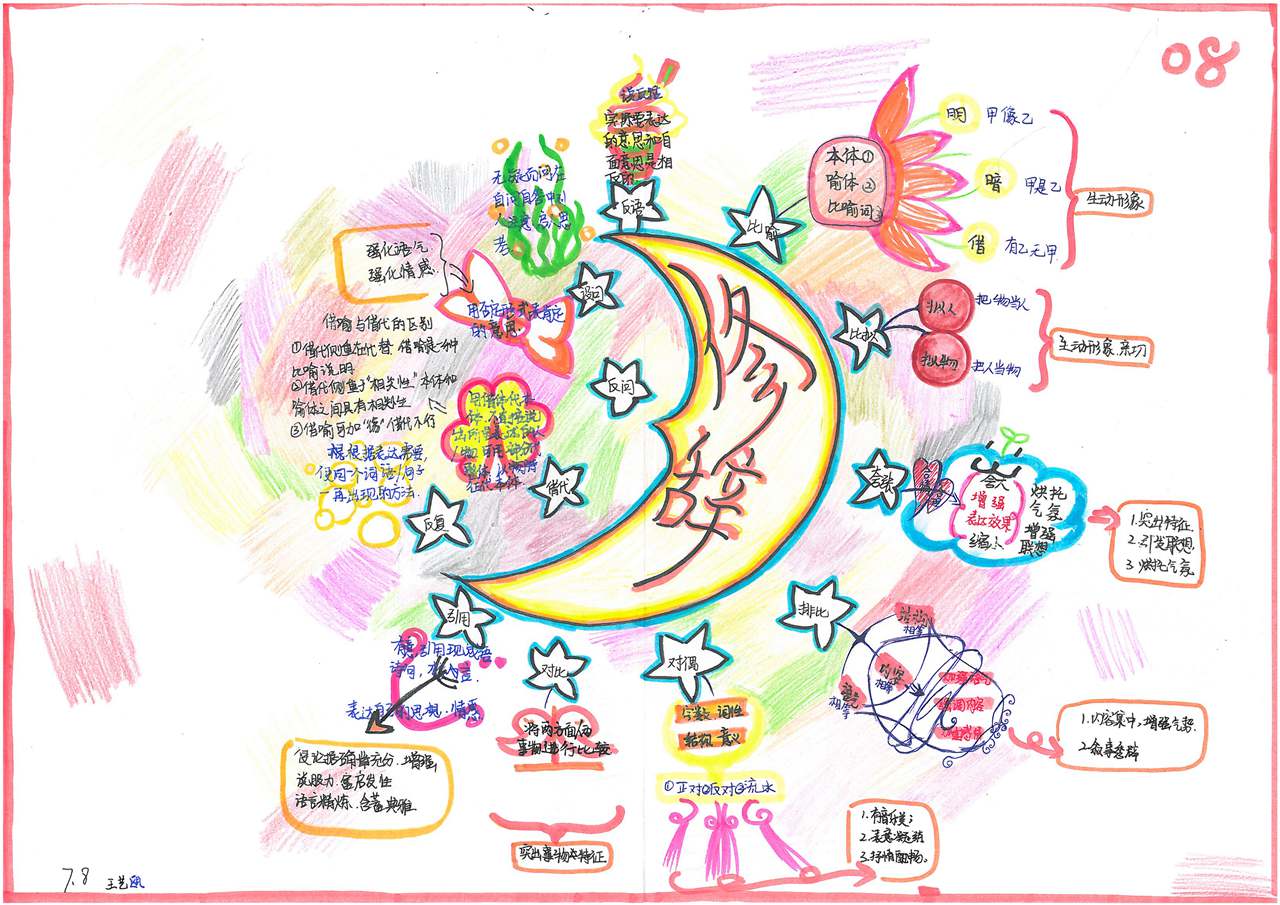 08
修辞
比喻
本体①
喻体②
比喻词③
明 甲像乙
暗 甲是乙
借 有乙无甲
生动形象
比拟
拟人 把物当人
拟物 把人当物
生动形象.亲切
夸张
增强
表达效果
缩小
烘托
气氛
增强
联想
1.突出特征.
2.引发联想.
3.烘托气氛
排比
结构
相等
内容
相等
相等
1.内容集中,增强气势
对偶
字数 词性
结构 意义
①正对②反对③流水
1.有音乐美;
3.抒情酣畅。
对比
将两方面/面
事物进行比较
突出事物本特征
引用
有意引用现成语
表达自己的思想.情感
使论据确凿充分.增强
说服力.富启发性
语言精炼.含蓄典雅
反复
根据表达需要,
使同一个词语/句子
一再出现的方法.
借代
用借体代本
体,不直接说
借喻与借代的区别
①借代侧重在代替 借喻是一种
比喻说明
②借代侧重于“相关性”本体和
喻体之间具有相似性
③借喻可加“像”借代不行
反问
用否定形式表肯定
的意思.
强化语气
强化情感.
设问
无疑而问在
自问自答中引
人注意 启人思
考
反语
实际要表达
的意思和自
面意思是相
反的
7.8 王艺